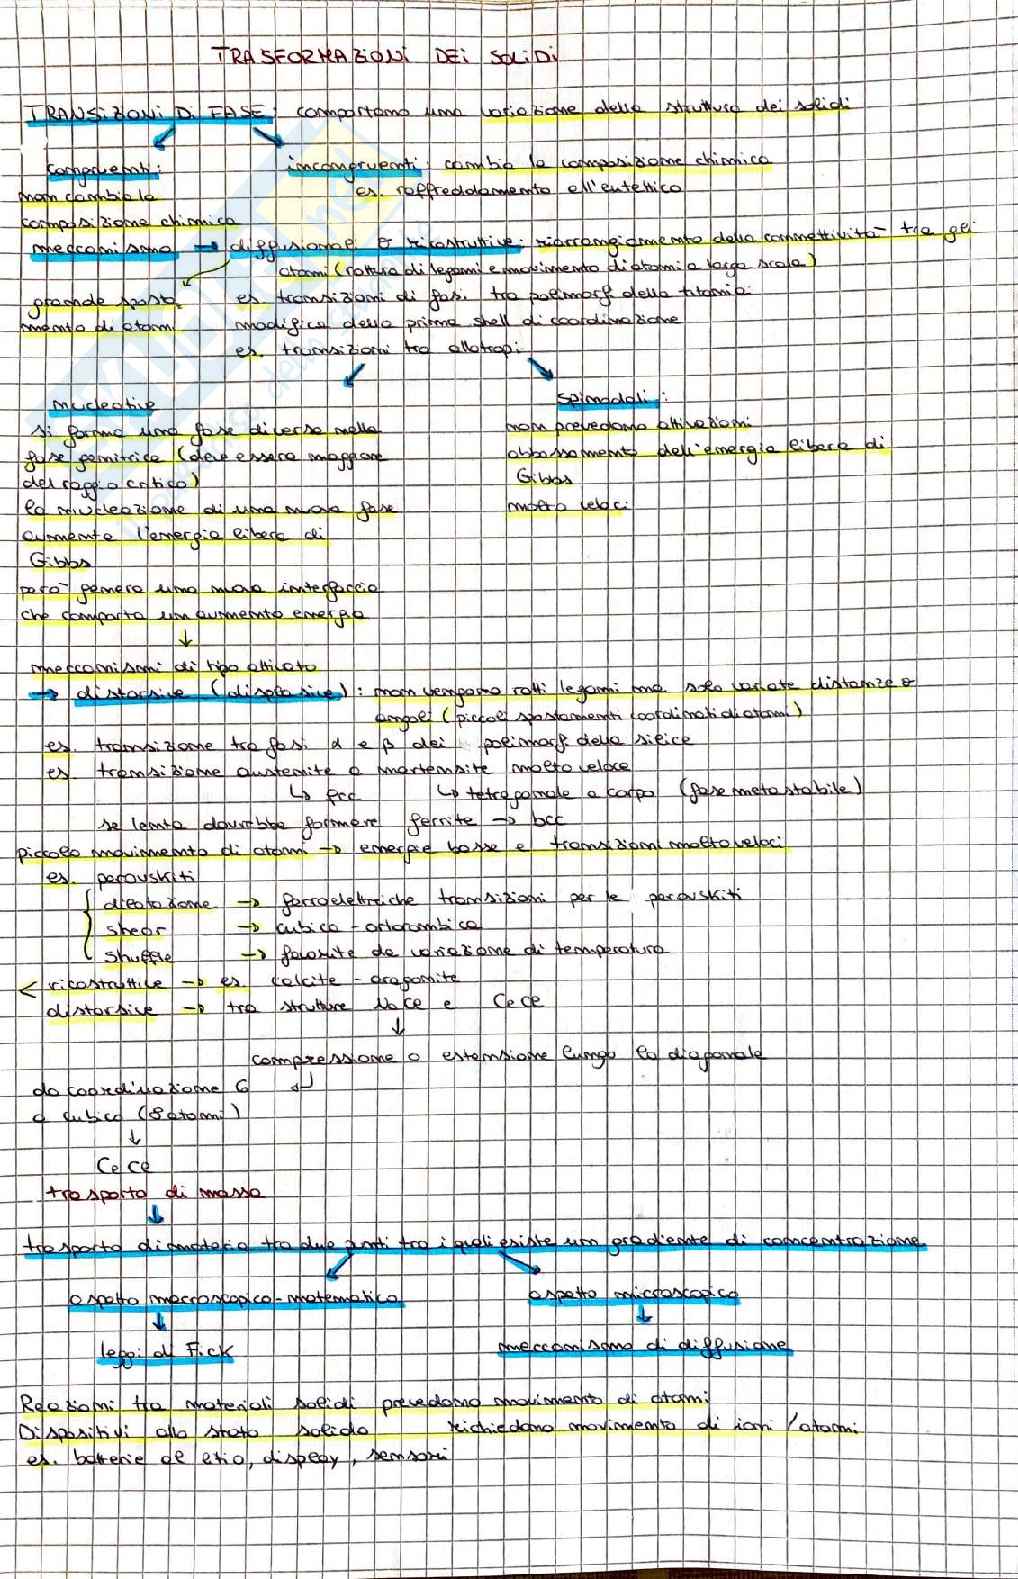 TRASFORMAZIONI DEI SOLIDI
TRANSIZIONI DI FASE: comportano una variazione della struttura dei solidi
congruenti: incongruenti: cambia la composizione chimica
non cambia la es. raffreddamento all'eutettico
composizione chimica
meccanismo → diffusionali o ricostruttive: riarrangiamento della connettività tra gli
atomi (rottura di legami e movimento di atomi a larga scala)
grande sposta es. transizioni di fasi tra polimorfi della titania
mento di atomi modifica della prima shell di coordinazione
es. transizioni tra allotropi
nucleative
si forma una fase diversa nella
fase genitrice (deve essere maggiore
del raggio critico)
la nucleazione di una nuova fase
aumenta l'energia libera di
Gibbs
però genera una nuova interfaccia
che comporta un aumento energia
↓
spinodali:
non prevedono attivazioni
abbassamento dell'energia libera di
Gibbs
molto veloci
meccanismi di tipo attivato
→ distorsive (displasive): non vengono rotti legami ma solo variate distanze e
angoli (piccoli spostamenti coordinati di atomi)
es. transizione tra fasi α e β dei polimorfi della silice
es. transizione austenite a martensite molto veloce
↳ fcc ↳ tetragonale a corpo (fase metastabile)
se lenta dovrebbe formare ferrite → bcc
piccolo movimento di atomi → energie basse e transizioni molto veloci
es. perovskiti
dilatazione → ferroelettriche transizioni per le perovskiti
shear → cubica - ortorombica
shuffle → favorite da variazione di temperatura
< ricostruttive → es. calcite - aragonite
distorsive → tra strutture NaCl e CsCl
↓
compressione o estensione lungo la diagonale
da coordinazione 6
a cubica (8 atomi)
↓
CsCl
trasporto di massa
↓
trasporto di materia tra due punti tra i quali esiste un gradiente di concentrazione
aspetto macroscopico-matematico aspetto microscopico
↓ ↓
leggi di Fick meccanismo di diffusione
Reazioni tra materiali solidi prevedono movimento di atomi
Dispositivi allo stato solido richiedono movimento di ioni/atomi
es. batterie al litio, display, sensori